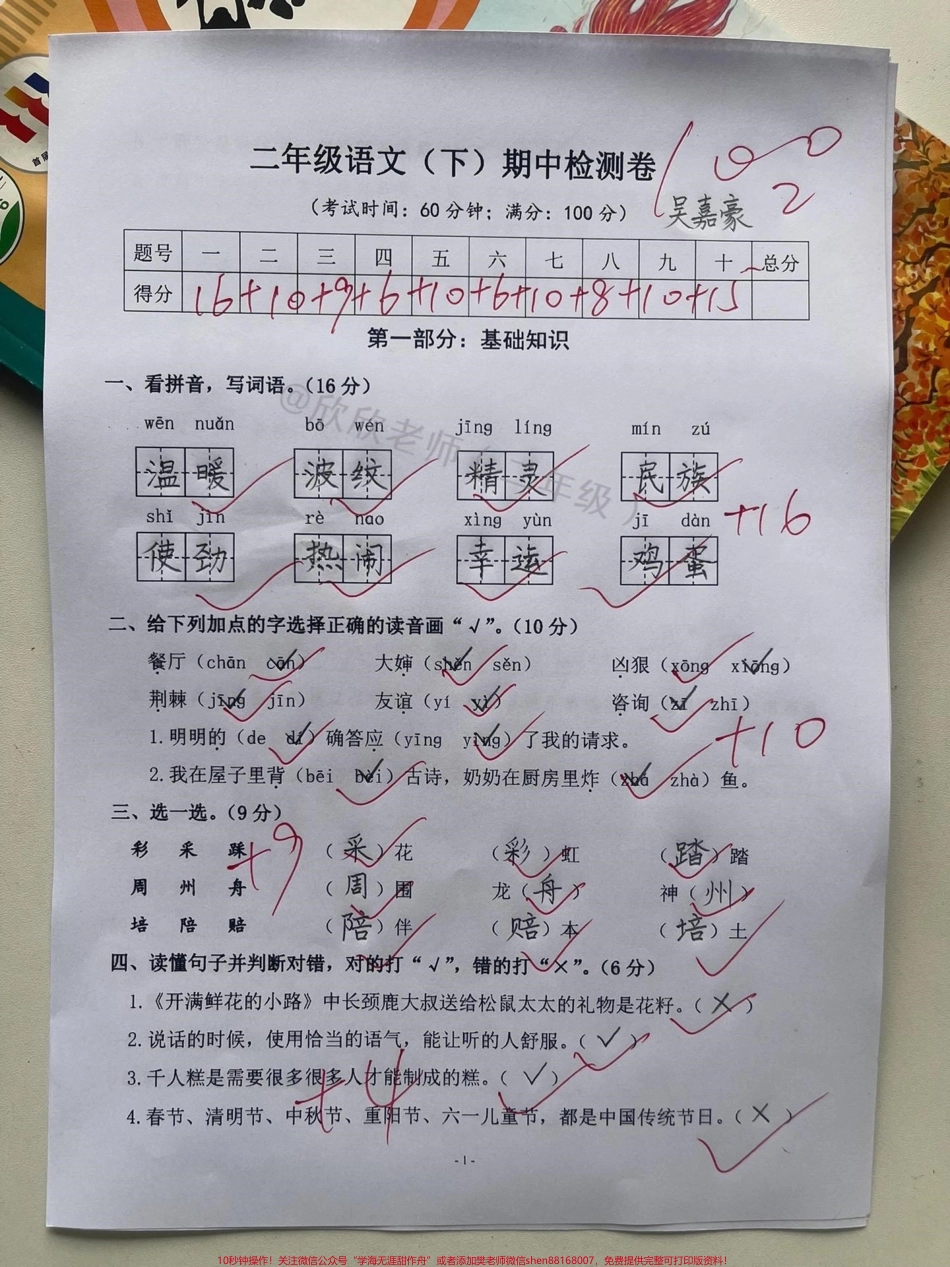 二年级语文（下）期中检测卷
100
2
（考试时间：60分钟；满分：100分） 吴嘉豪
题号 一 二 三 四 五 六 七 八 九 十 总分
得分 16+10+9+6+10+6+10+8+10+15
第一部分：基础知识
一、看拼音，写词语。（16分）
@欣欣老师
年级）
wēn nuǎn bō wén jīng líng mín zú
温暖 波纹 精灵 民族
shǐ jìn rè nao xìng yùn jī dàn
使劲 热闹 幸运 鸡蛋
+16
二、给下列加点的字选择正确的读音画“√”。（10分）
餐厅（chān cān） 大婶（shěn sěn） 凶狠（xōng xiōng）
荆棘（jīng jīn） 友谊（yí yì） 咨询（zī zhī）
1.明明的（de dí）确答应（yīng yìng）了我的请求。
+10
2.我在屋子里背（bēi bèi）古诗，奶奶在厨房里炸（zhá zhà）鱼。
三、选一选。（9分）
+9
彩 采 踩 （采）花 （彩）虹 （踏）踏
周 州 舟 （周）围 龙（舟） 神（州）
培 陪 赔 （陪）伴 （赔）本 （培）土
四、读懂句子并判断对错，对的打“√”，错的打“×”。（6分）
1.《开满鲜花的小路》中长颈鹿大叔送给松鼠太太的礼物是花籽。（×）
2.说话的时候，使用恰当的语气，能让听的人舒服。（✓）
3.千人糕是需要很多很多人才能制成的糕。（✓）
+4
4.春节、清明节、中秋节、重阳节、六一儿童节，都是中国传统节日。（×）
- 1 -
10秒钟操作！关注微信公众号“学海无涯甜作舟”或者添加樊老师微信shen88168007，免费提供完整可打印版资料！